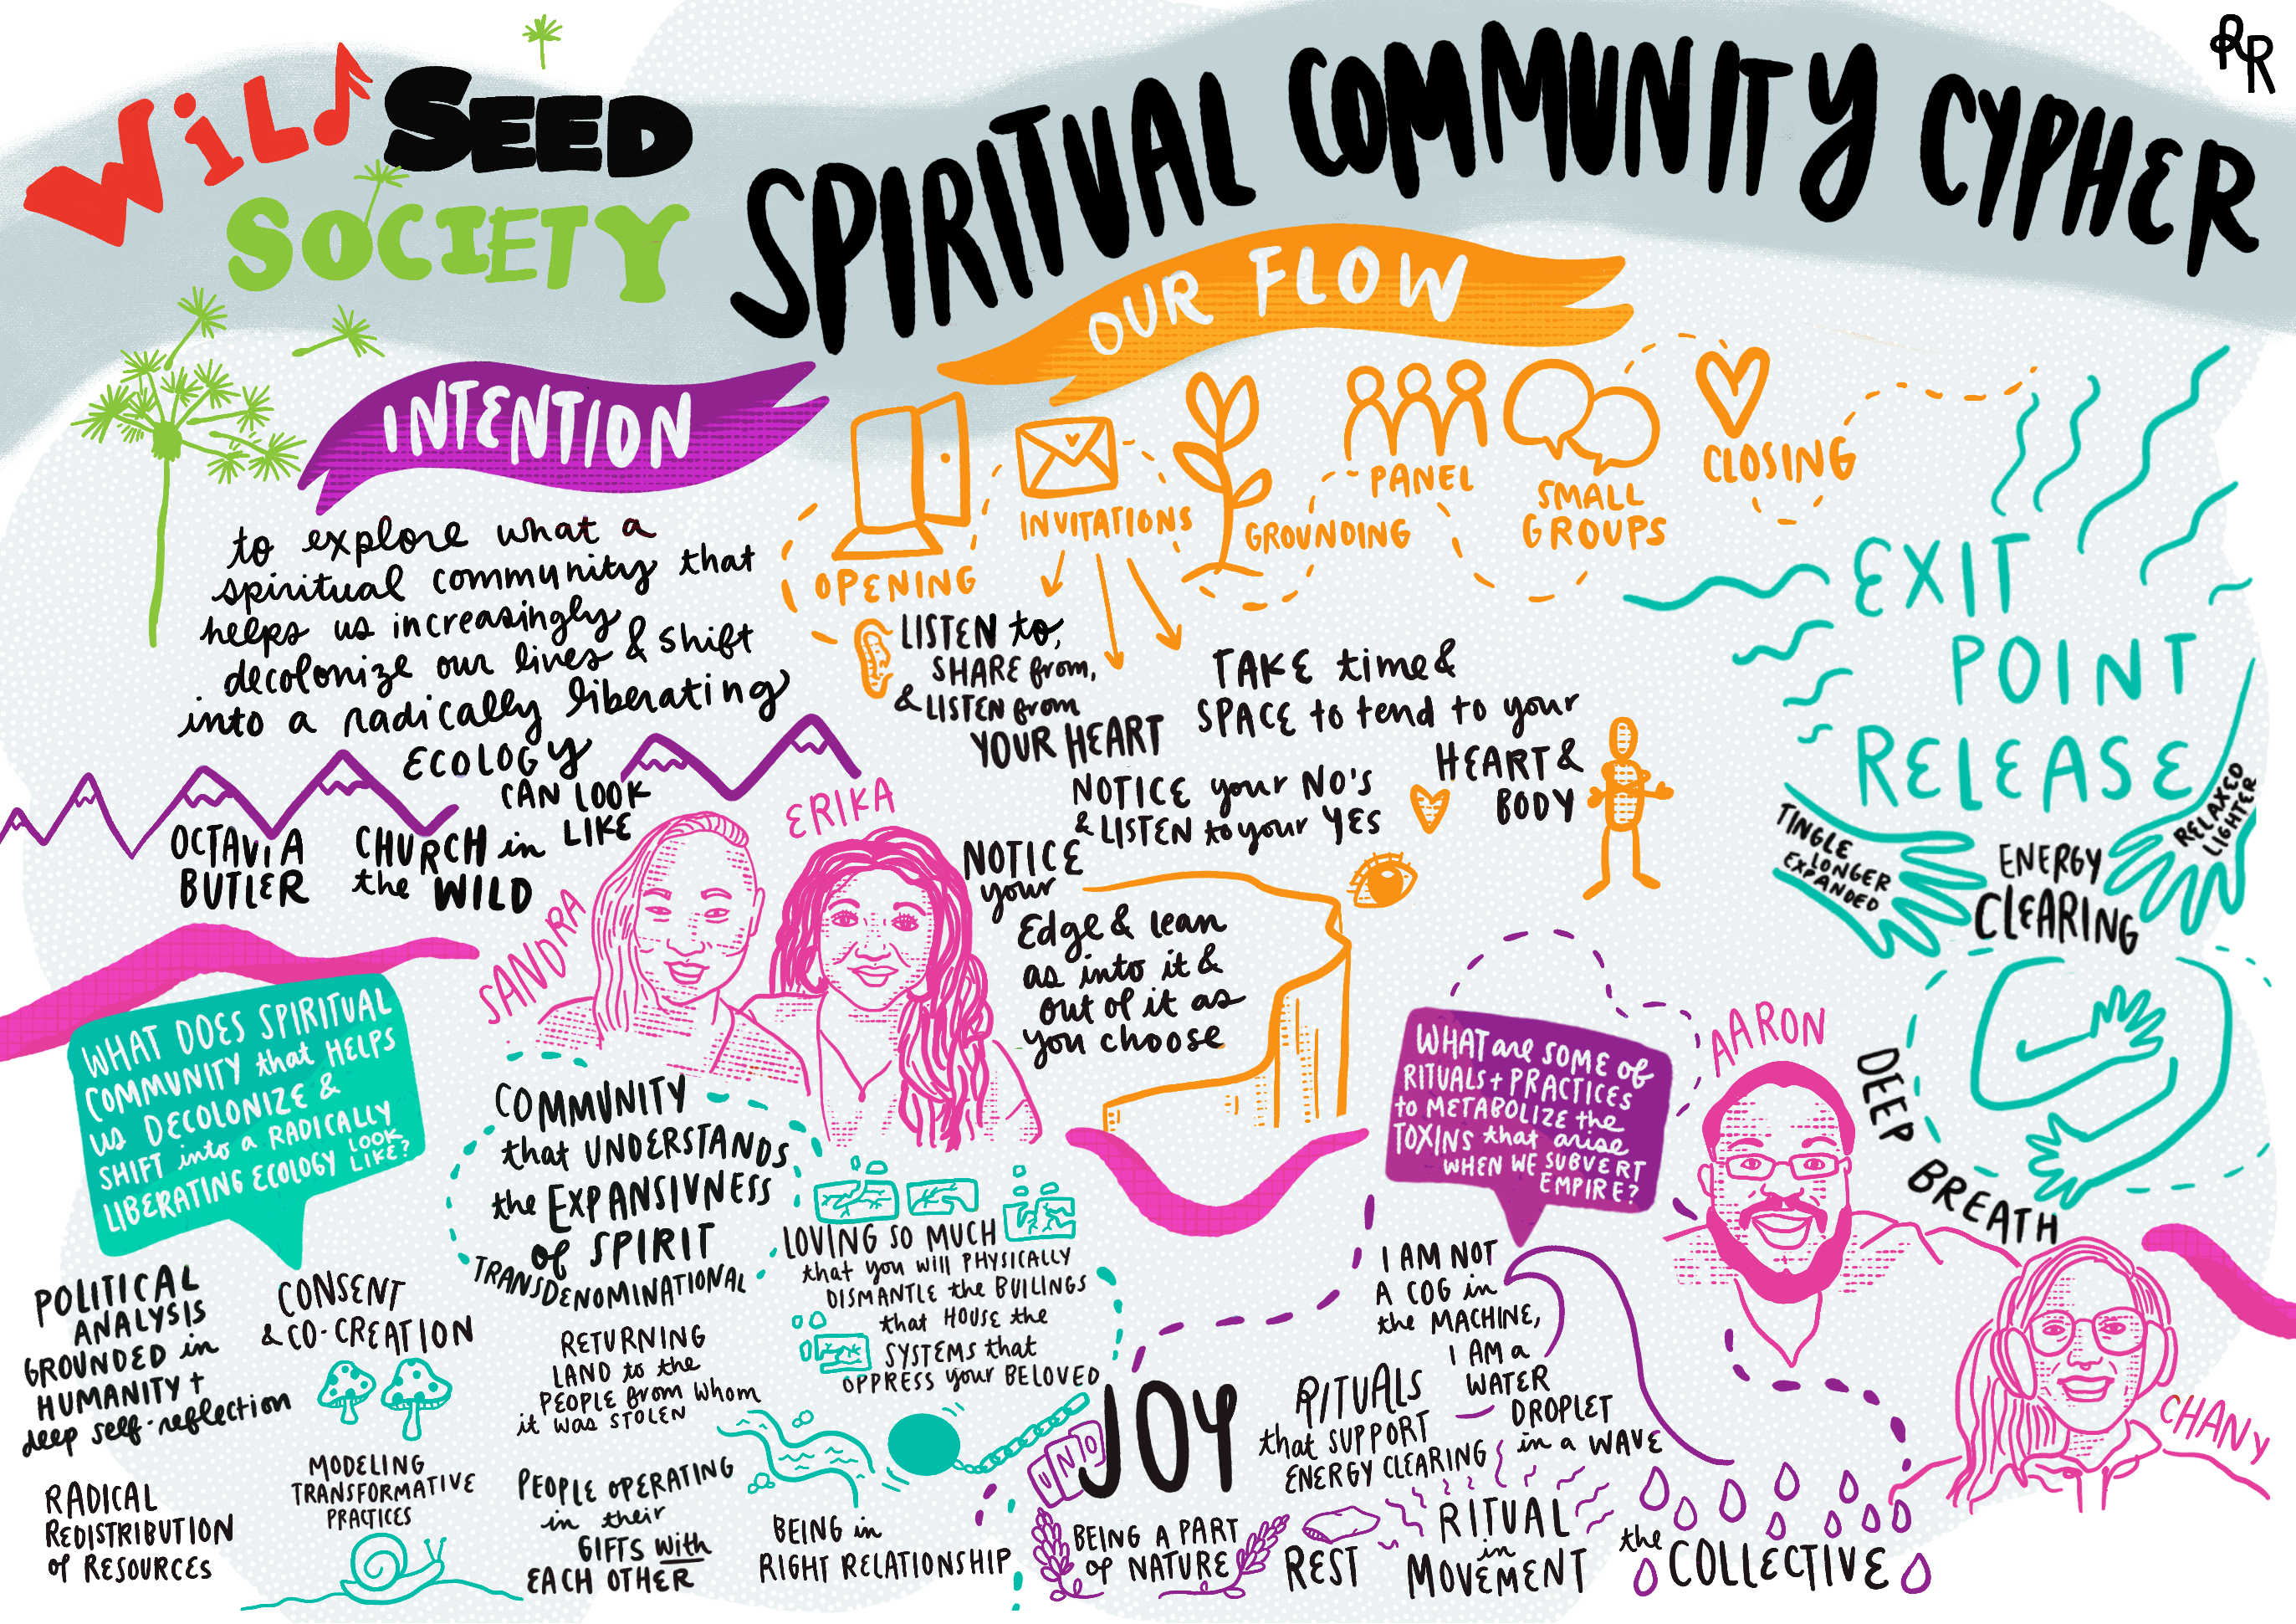 WiLd SEED
SOCIETY
SPIRITUAL COMMUNITY CYPHER
RR
INTENTION
to explore what a
spiritual community that
helps us increasingly
decolonize our lives & shift
into a radically liberating
ECOLOGY
CAN LOOK
LIKE
OCTAViA
BUTLER
CHURCH in
the WILD
OUR FLOW
OPENING
INVITATIONS
GROUNDING
PANEL
SMALL
GROUPS
CLOSING
LISTEN to,
SHARE from,
& LISTEN from
YOUR HEART
TAKE time &
SPACE to tend to your
HEART &
BODY
NOTICE your NO'S
& LISTEN to your YES
NOTICE
your
Edge & lean
as into it &
out of it as
you choose
EXIT
POINT
RELEASE
TINGLE
LONGER
EXPANDED
RELAXED
LIGHTER
ENERGY
CLEARING
DEEP
BREATH
SANDRA
ERIKA
WHAT DOES SPIRITUAL
COMMUNITY that HELPS
us DECOLONIZE &
SHIFT into a RADICALLY
LIBERATING ECOLOGY LOOK
LIKE?
POLITICAL
ANALYSIS
GROUNDED in
HUMANITY +
deep self-reflection
CONSENT
& CO-CREATION
RADICAL
REDISTRIBUTION
of RESOURCES
MODELING
TRANSFORMATIVE
PRACTICES
COMMUNITY
that UNDERSTANDS
the EXPANSIVNESS
of SPIRIT
TRANSDENOMINATIONAL
RETURNING
LAND to the
PEOPLE from whom
it was STOLEN
PEOPLE OPERATING
in their
GIFTS with
EACH OTHER
LOVING SO MUCH
that you will PHYSICALLY
DISMANTLE the BUILINGS
that HOUSE the
SYSTEMS that
OPPRESS your BELOVED
BEING in
RIGHT RELATIONSHIP
AARON
CHANY
WHAT are SOME of
RITUALS + PRACTICES
to METABOLIZE the
TOXINS that arise
WHEN WE SUBVERT
EMPIRE?
I AM NOT
A COG in
the MACHINE,
I AM a
WATER
DROPLET
in a WAVE
UNO
JOY
RITUALS
that SUPPORT
ENERGY CLEARING
BEING A PART
of NATURE
REST
RITUAL
in
MOVEMENT
the
COLLECTIVE